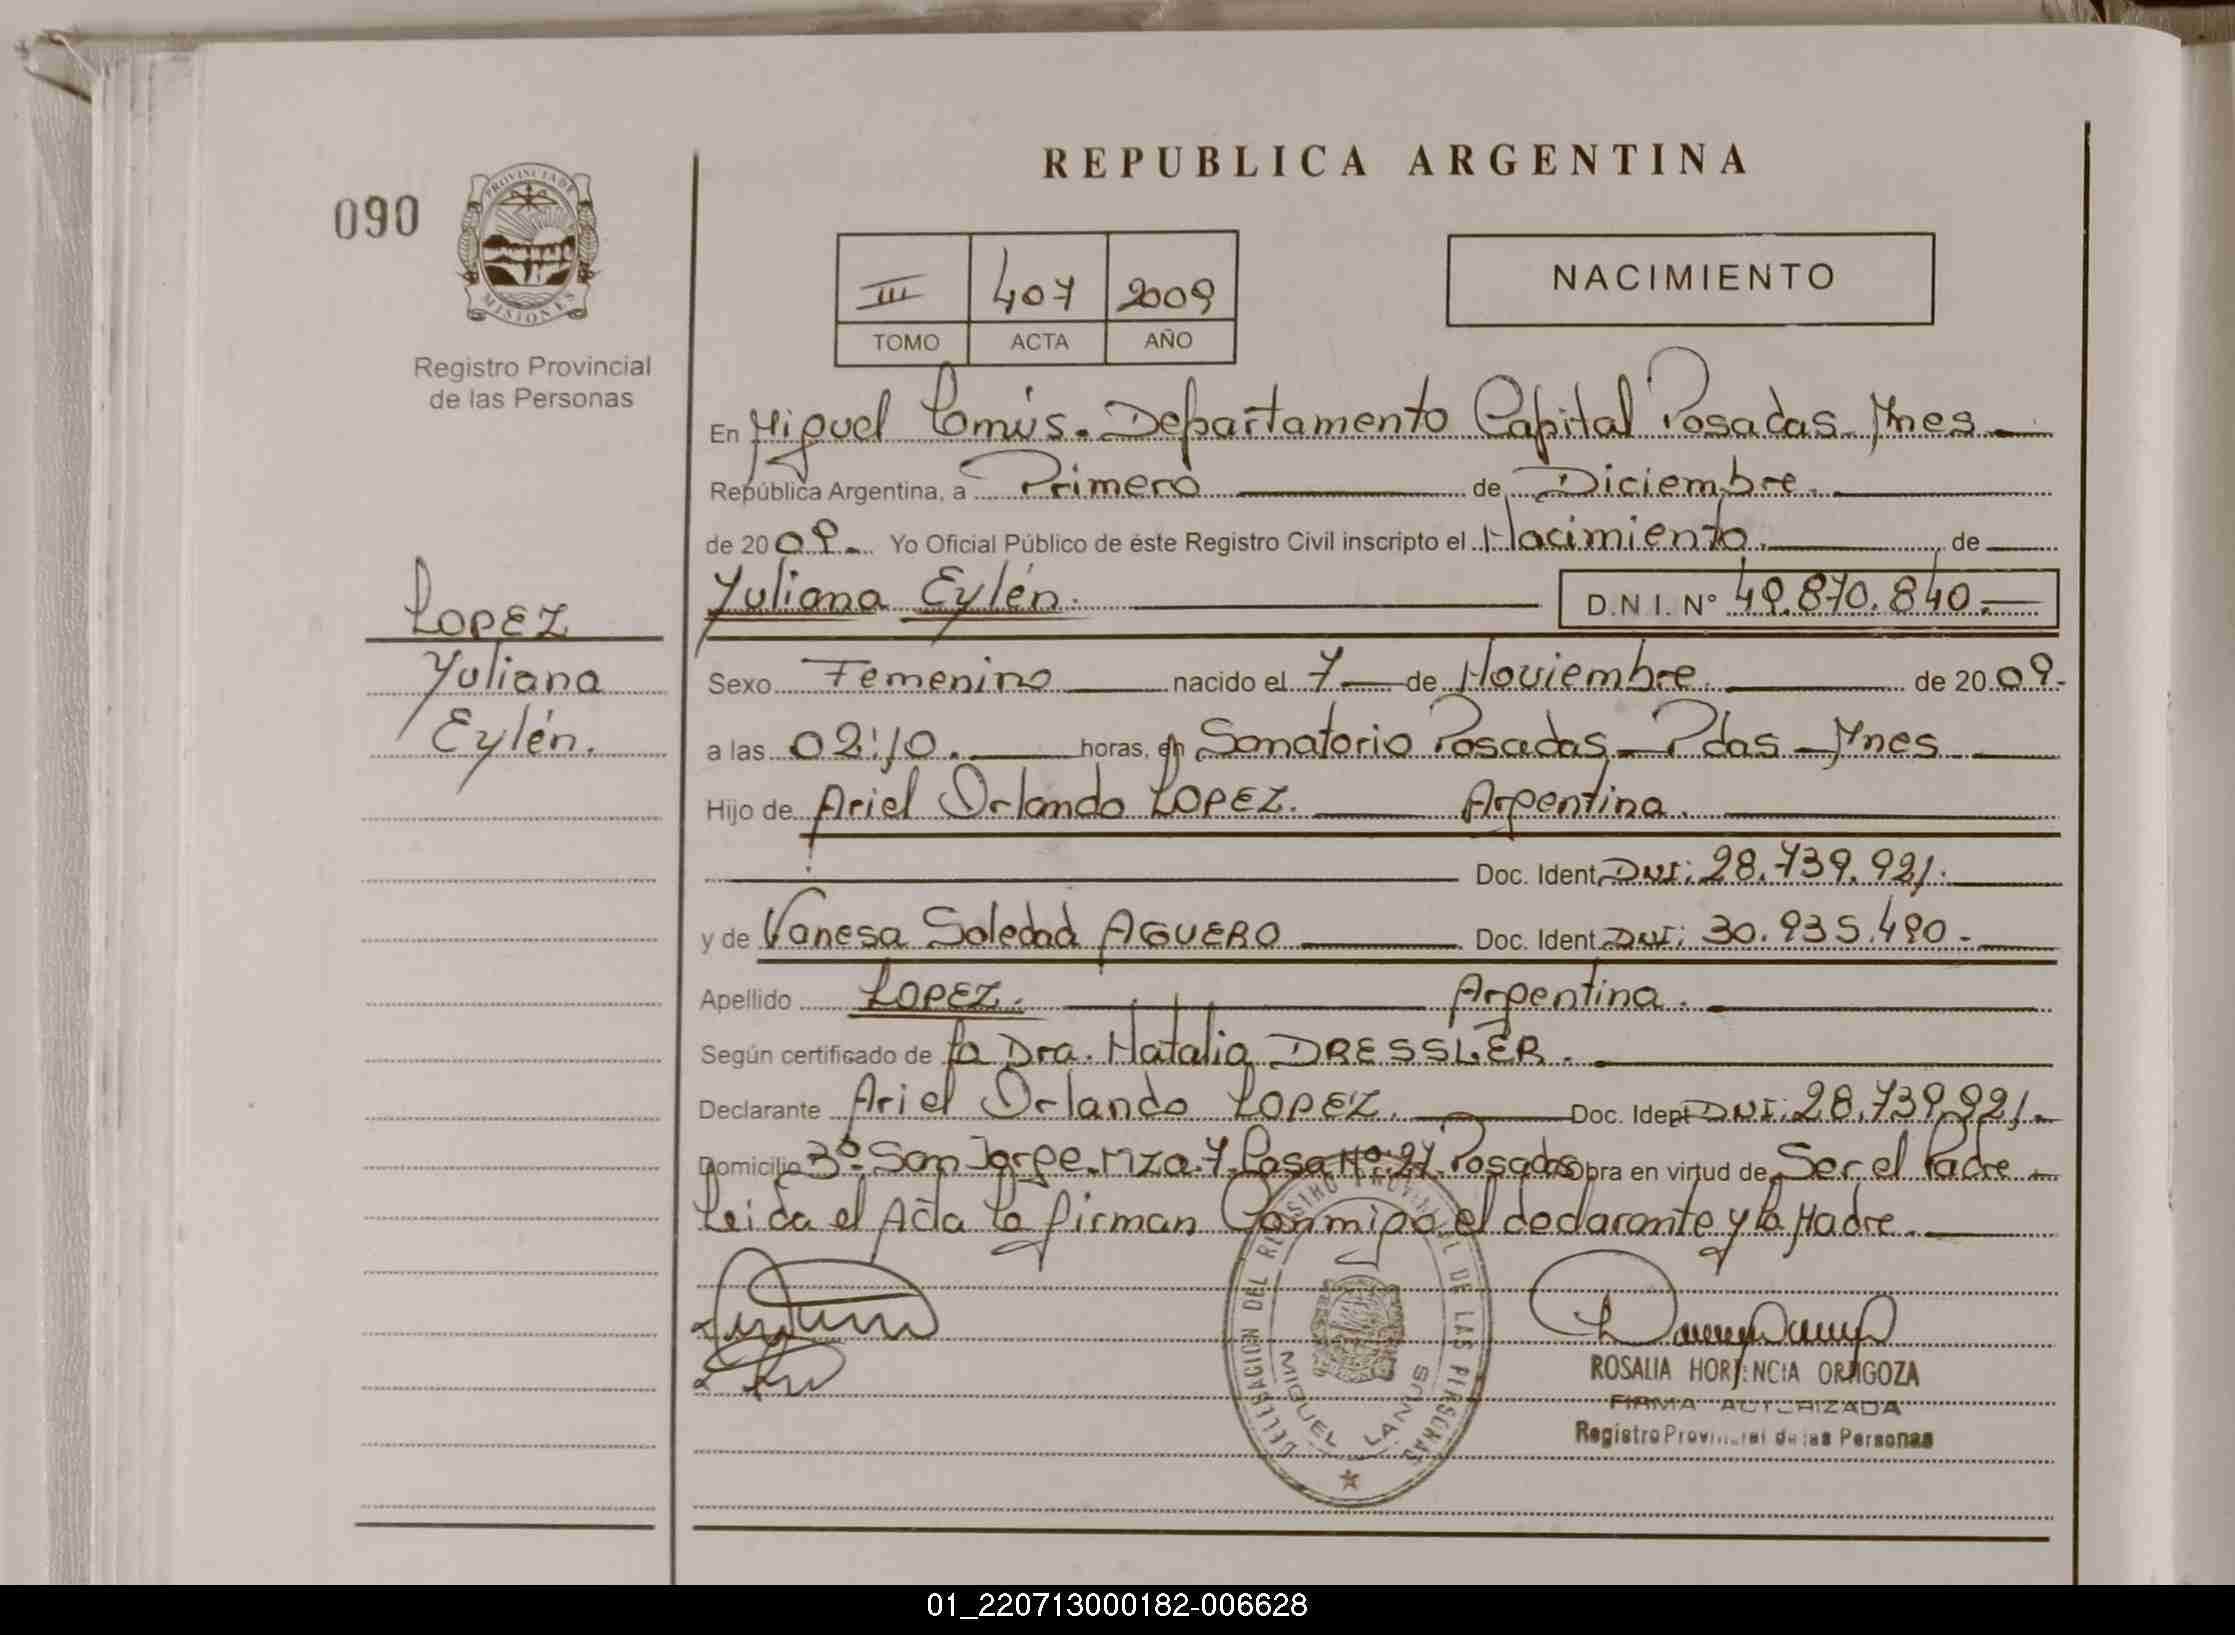 REPUBLICA ARGENTINA
090
PROVINCIA DE
MISIONES
Registro Provincial
de las Personas
III 407 2009
TOMO ACTA AÑO
NACIMIENTO
En Miguel Lanús. Departamento Capital Posadas Mnes
República Argentina, a Primero de Diciembre.
de 2009. Yo Oficial Público de éste Registro Civil inscripto el Nacimiento. de
Yuliana Eylén. D.N.I. N° 49.870.840.
LOPEZ
Yuliana
Eylén.
Sexo Femenino nacido el 7 de Noviembre. de 2009.
a las 02:10. horas, en Sanatorio Posadas - Pdas - Mnes
Hijo de Ariel Orlando LOPEZ. Argentina.
Doc. Ident. DNI: 28.739.921.
y de Vanesa Soledad AGUERO Doc. Ident. DNI: 30.935.490.
Apellido LOPEZ. Argentina.
Según certificado de la Dra. Natalia DRESSLER.
Declarante Ariel Orlando LOPEZ. Doc. Ident DNI: 28.739.921.
Domicilio San Jorge. Mza. 7. Casa Nº: 27. Posadas Obra en virtud de Ser el Padre
Leida el Acta la firman Conmigo el declarante y la Madre.
DELEGACION DEL REGISTRO PROVINCIAL DE LAS PERSONAS
MIGUEL LANUS
ROSALIA HORTENCIA ORTIGOZA
FIRMA AUTORIZADA
Registro Provincial de las Personas
01_220713000182-006628